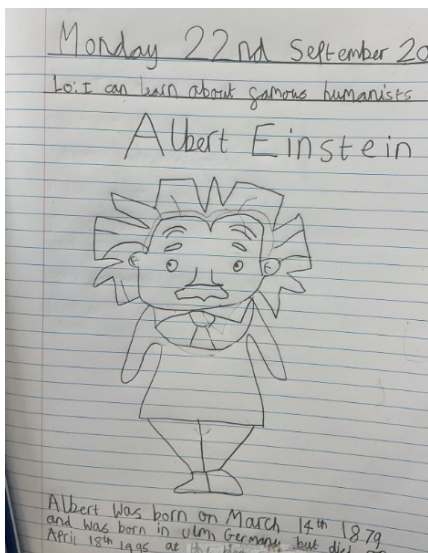 Monday 22nd September 20
Lo: I can learn about famous humanists
Albert Einstein
Albert was born on March 14th 1879
and was born in ulm, Germany but died
April 18th 1995 at the